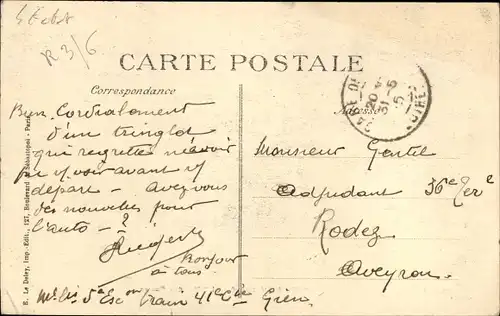 R 3/6
CARTE POSTALE
Correspondance
Adresse
Bien Cordialement
d'un tringlot
qui regrette n'avoir
pu y voir avant
départ — avez vous
des nouvelles pour
l'auto — ?
Bonjour
à tous
5e Esc on train 41e Cie
Monsieur Gentil
Adjudant
Rodez
Aveyron
20
31-5
E. Le Deley, Imp.-Edit., 127, Boulevard de Sébastopol - Paris